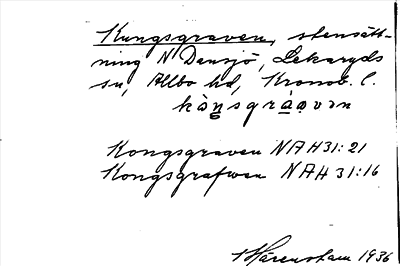 Kungsgraven, stensätt-
ning N Dansjö, Lekaryds
sn, Allbo hd, Kronob. l.
kòŋsgràạvən
Kongsgraven NAH 31:21
Kongsgrafwen NAH 31:16
1936